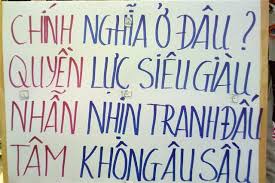 CHÍNH NGHĨA Ở ĐÂU ?
QUYỀN LỰC SIÊU GIÀU
NHẪN NHỊN TRANH ĐẤU
TÂM KHÔNG ÂU SẦU